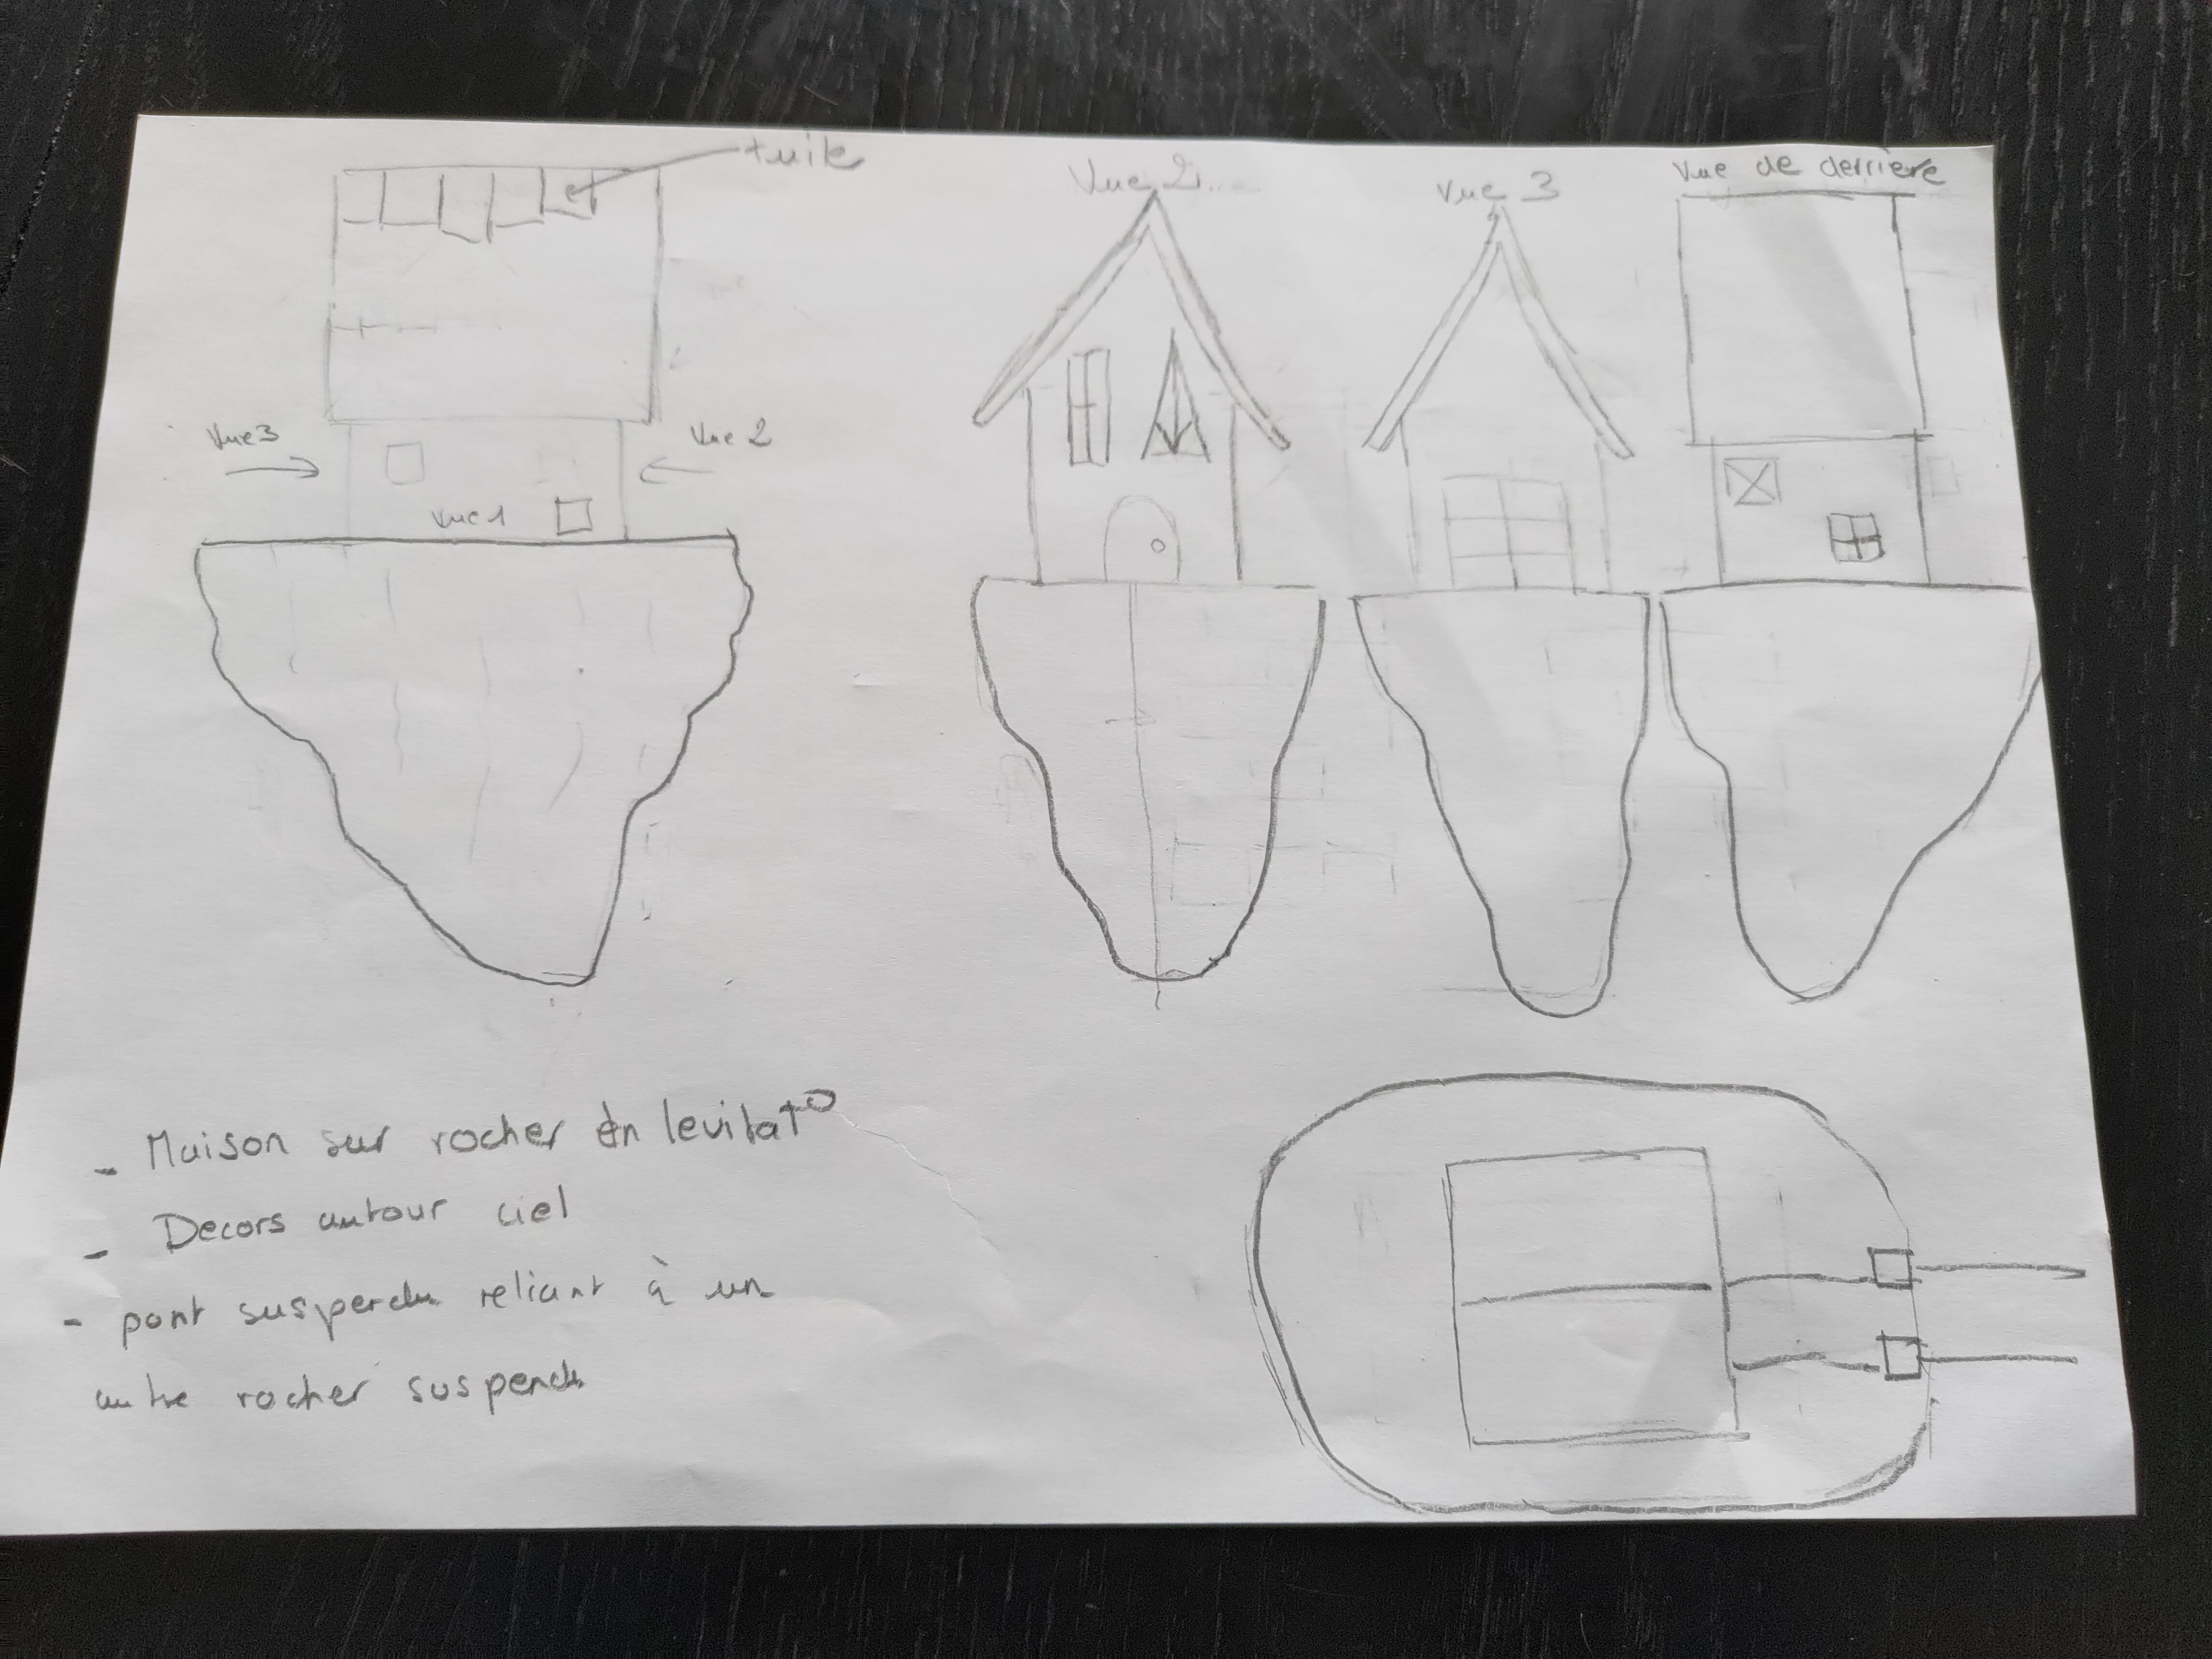 tuile
Vue 2
Vue 3
Vue de derriere
Vue 3
Vue 2
Vue 1
- Maison sur rocher en levitat°
- Decors autour ciel
- pont suspendu reliant à un
autre rocher suspendu